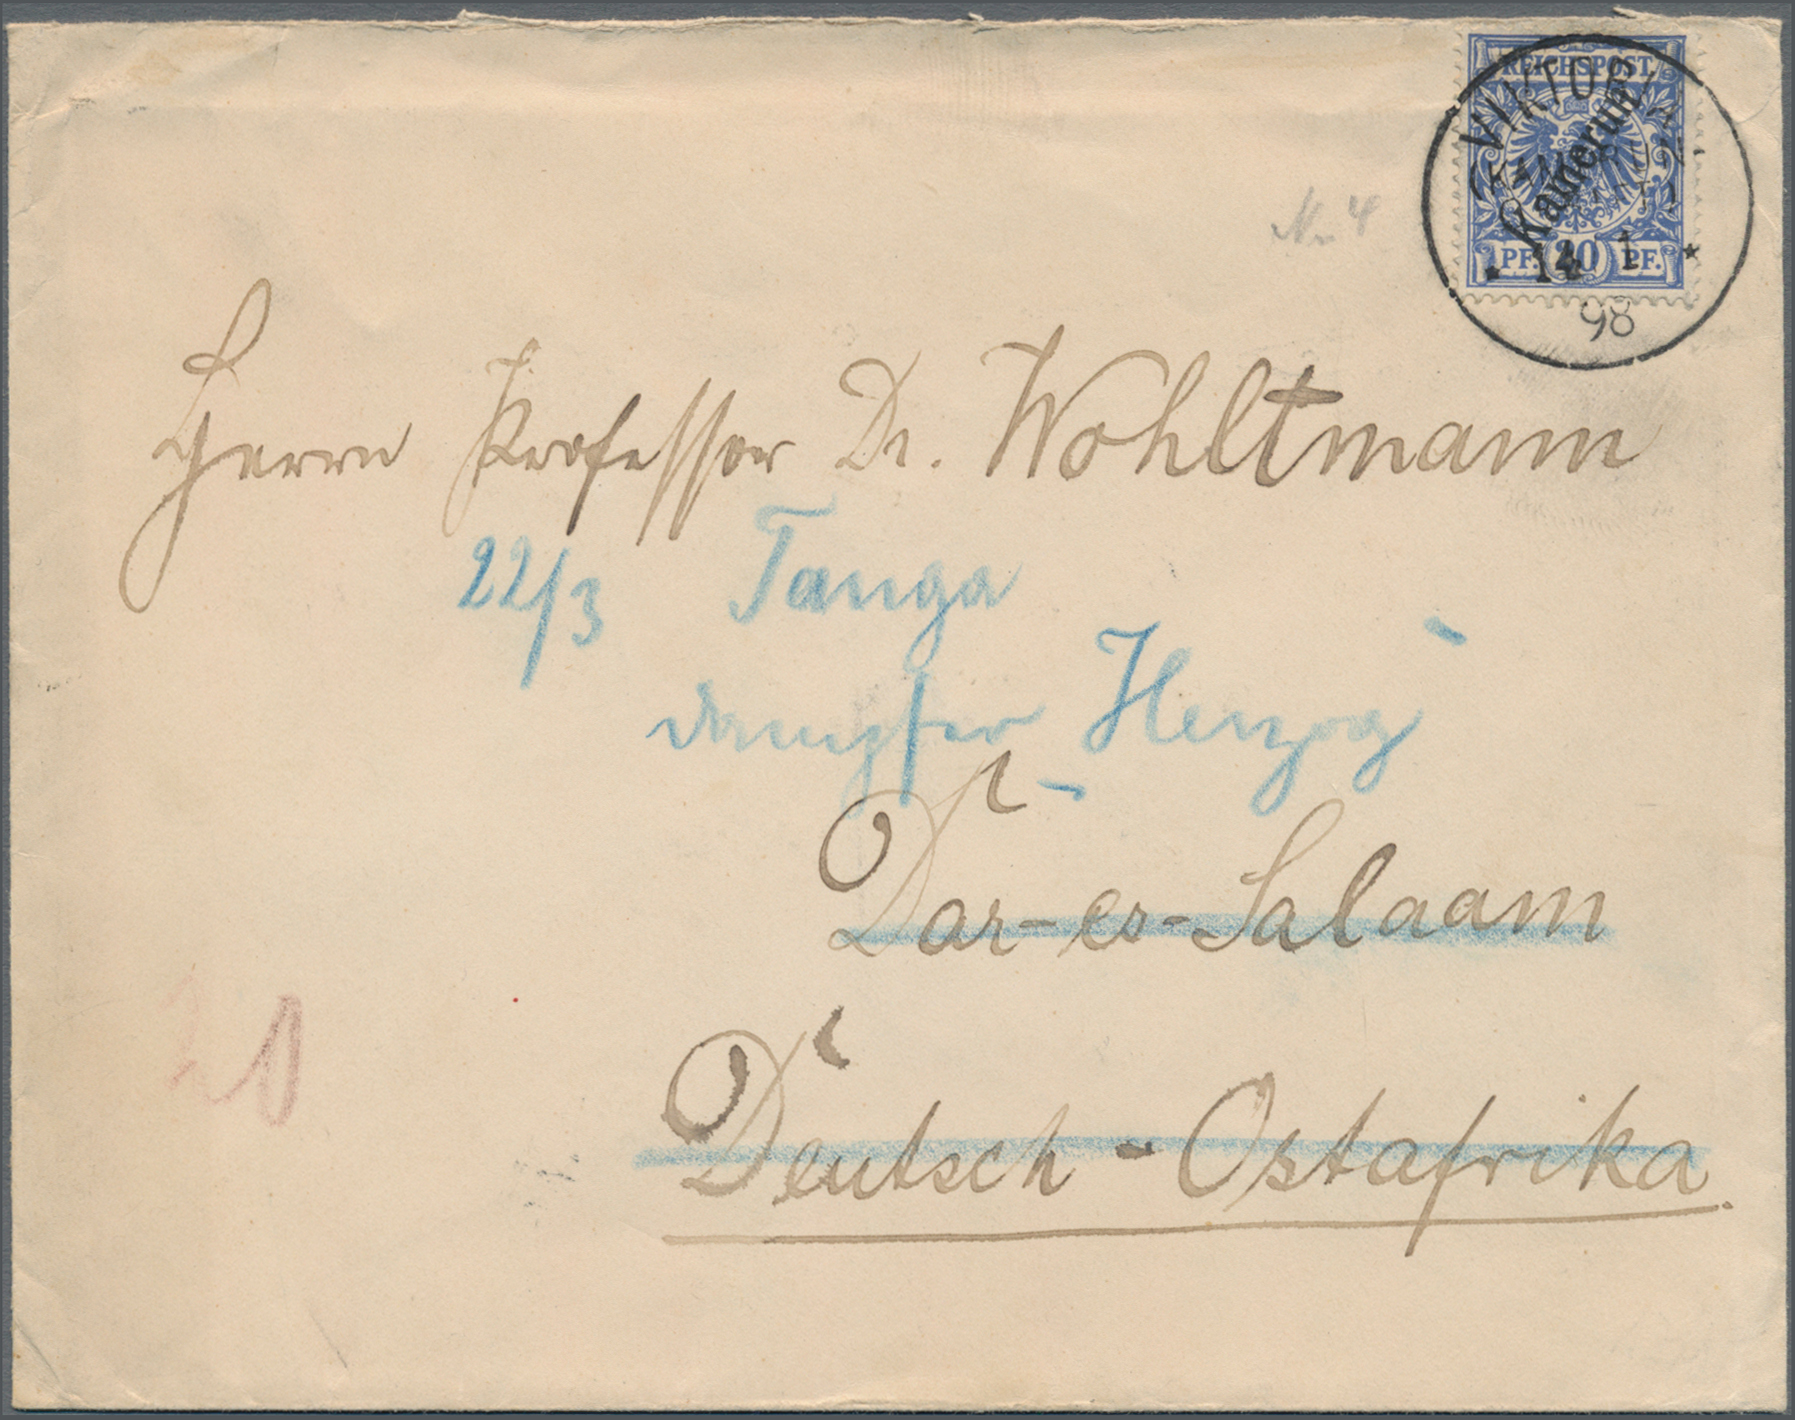 REICHSPOST
VIKTORIA
(KAMERUN)
Kamerun
PF. 20 PF.
* 14 1 *
98
Nr 4
Herrn Professor Dr. Wohltmann
22/3 Tanga
Dampfer Herzog
Dar-es-Salaam
Deutsch-Ostafrika.